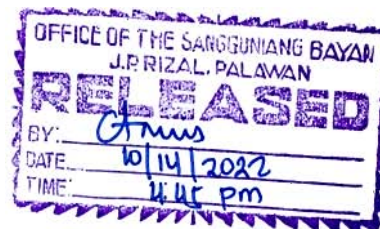 OFFICE OF THE SANGGUNIANG BAYAN
J.P. RIZAL, PALAWAN
RELEASED
BY:
DATE 10/14/2022
TIME: 4:45 pm